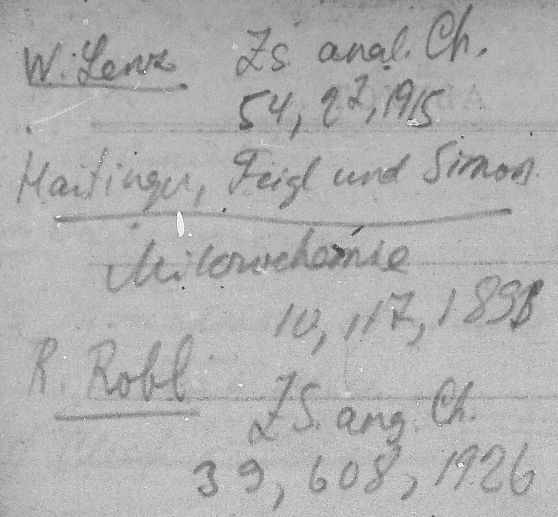 W. Lenz Zs. anal. Ch.
54, 27, 1915
Haitinger, Feigl und Simon
Mikrochemie
10, 117,
R. Robl
ZS. ang. Ch.
39, 608, 1926